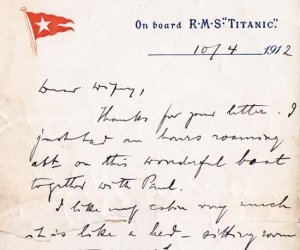 On board R·M·S "TITANIC".
10/4 1912
Dear Wifey,
Thanks for your letter. I
just had an hours roaming
abt on this wonderful boat
together with Paul.
I like my cabin very much
it is like a bed-sitting room